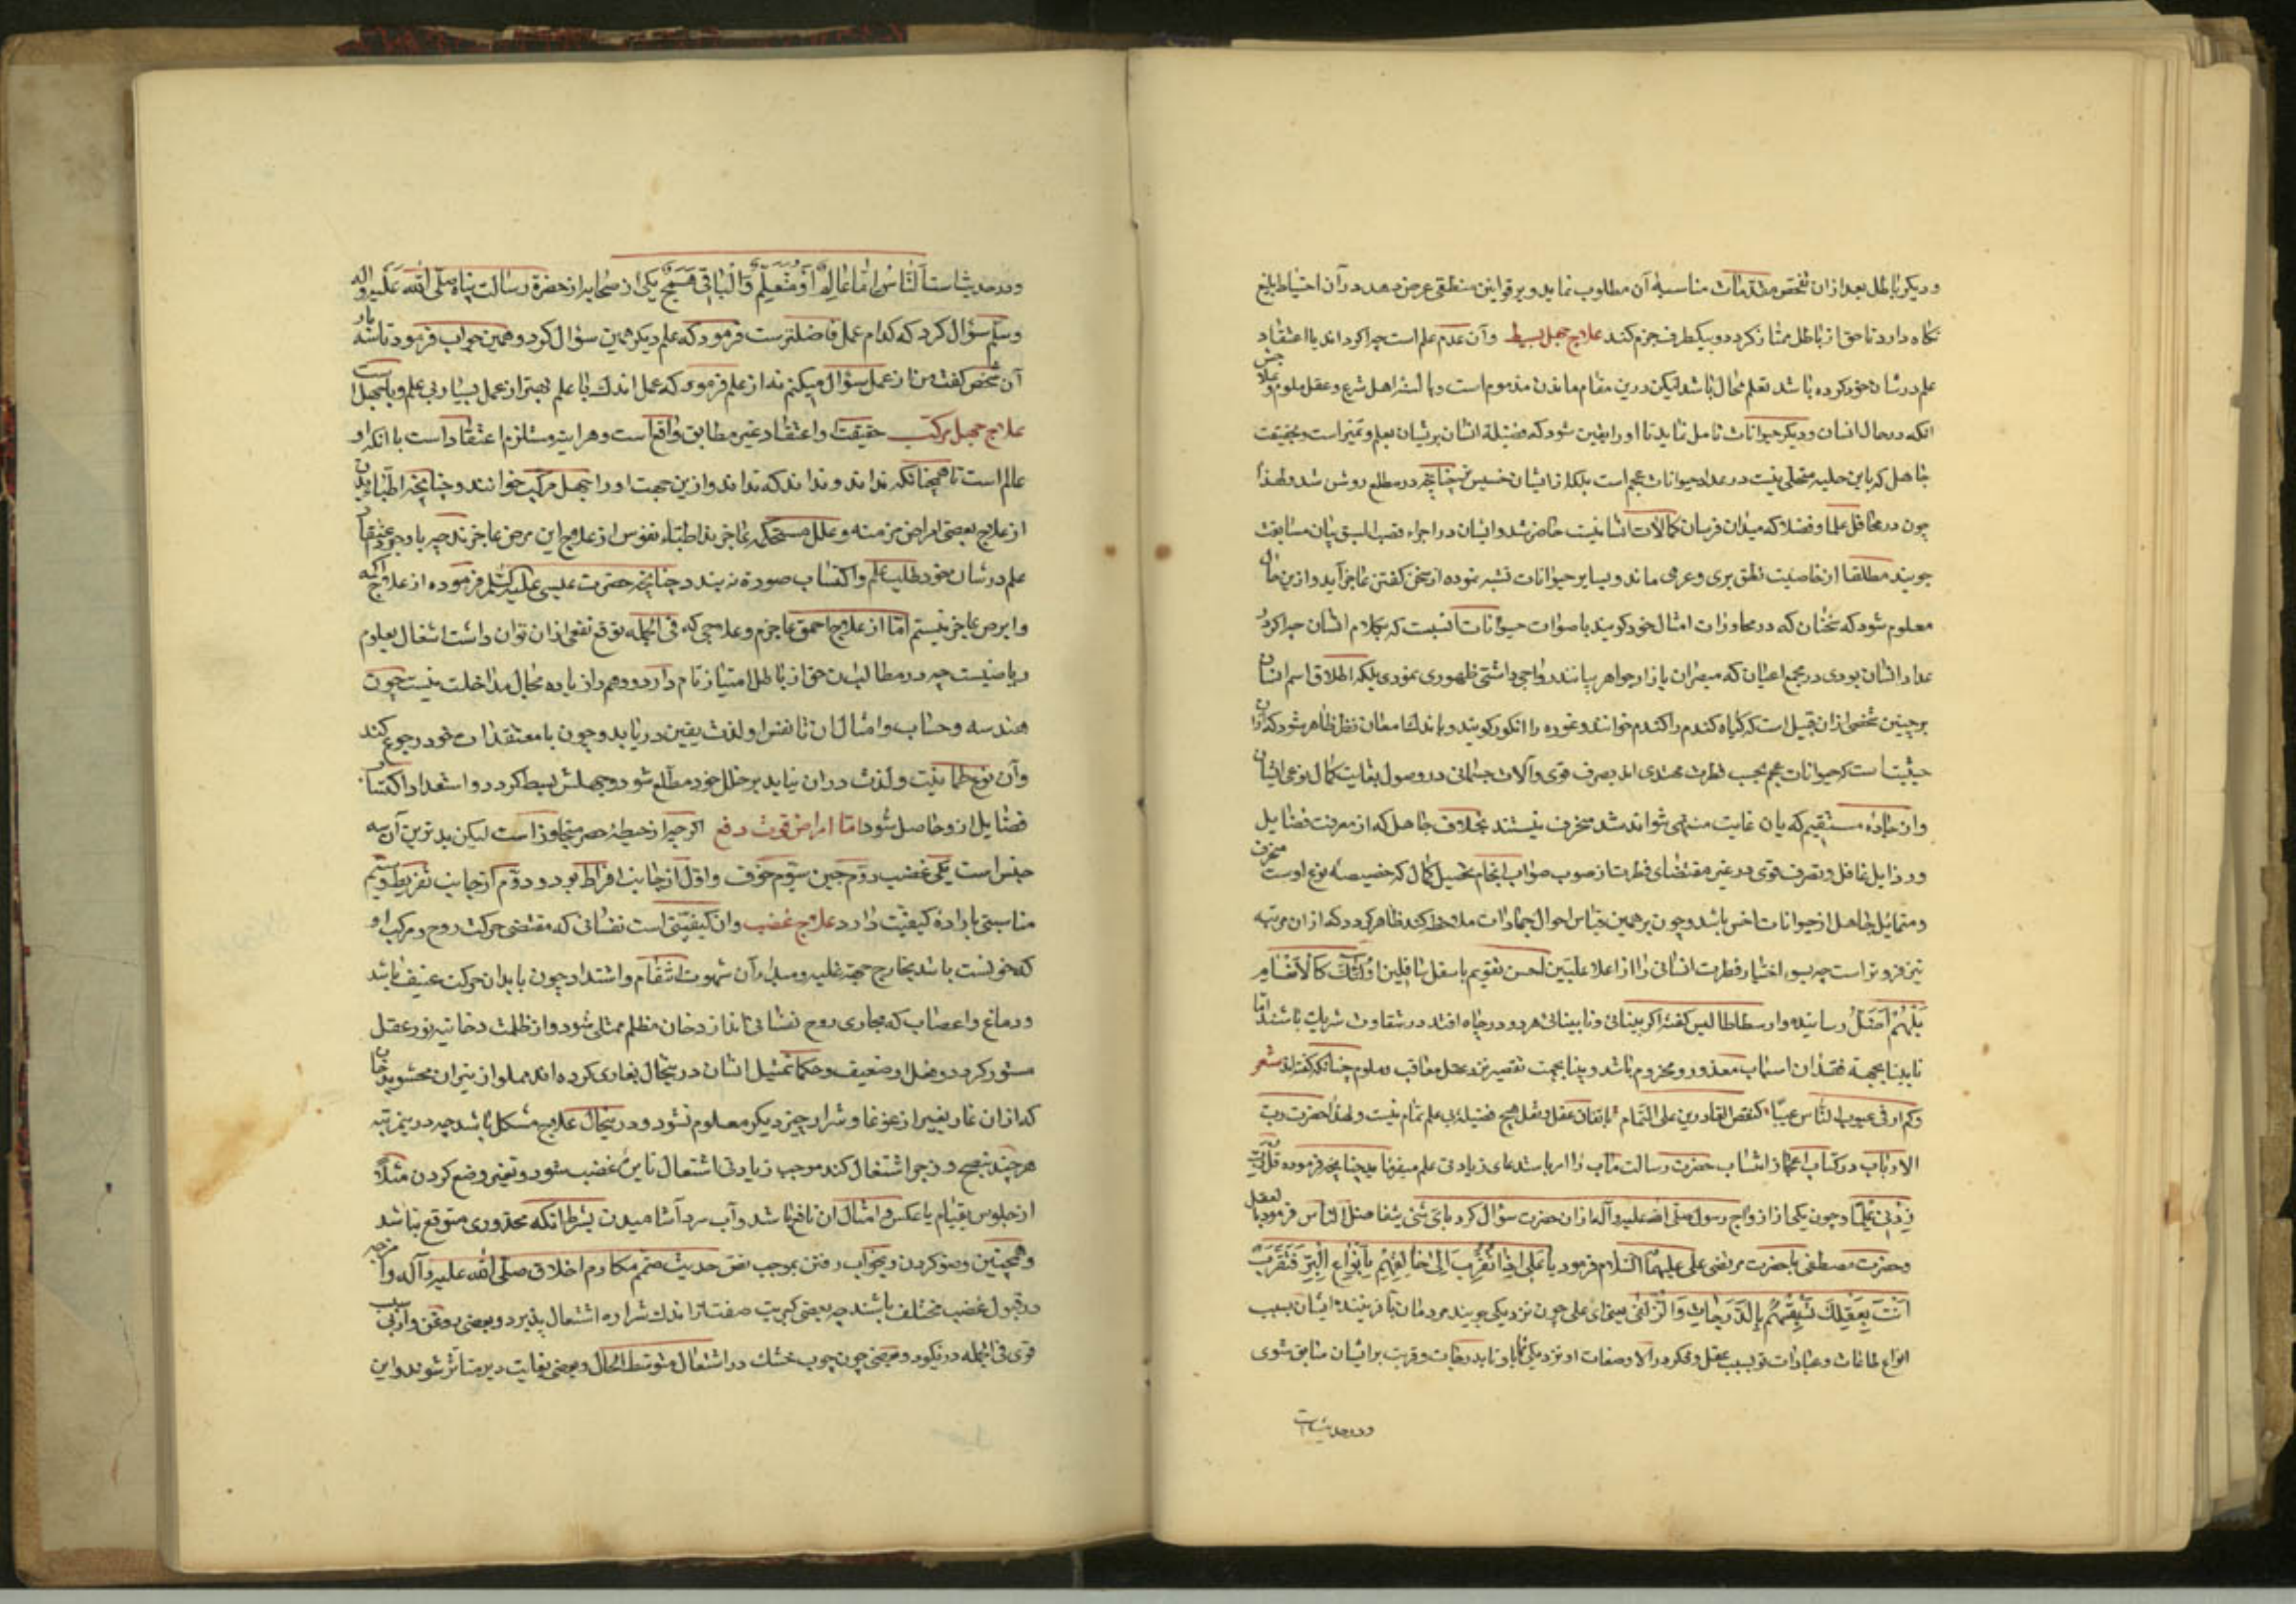 و دیکر باطل بعد از ان تفحص مقدمات مناسبهٔ آن مطلوب نماید و بر قوانین منطقی عرض دهد و در آن احتیاط بلیغ
نکاه دارد تا حق از باطل ممتاز کردد و بیکطرف جزم کند علاج جهل بسیط وآن عدم علم است چه اکر داند یا اعتقاد
علم در شان خود کرده باشد تعلم محال باشد لیکن درین مقام ماندن مذموم است و بالسنهٔ اهل شرع و عقل ملوم و علاجش
انکه در حال انسان و دیکر حیوانات تامل نماید تا او را یقین شود که فضیلة انسان بریشان بعلم و تمیز است و بحقیقت
جاهل که باین حلیه متحلی نیست در عداد حیوانات عجم است بلکه از ایشان خسیس تر چنانچه در مطلع روشن شد و لهذا
چون در محافل علما و فضلا که میدان فرسان کمالات انسانیست حاضر شد و ایشان در اجراء قصب السبق بیان مسابقت
جویند مطلقا از خاصیت نطق بری و عری ماند و بسایر حیوانات تشبه نموده از سخن کفتن عاجز آید و ازین حال
معلوم شود که سخنان که در محاورات امثال خود کویند باصوات حیوانات انسبت که بکلام انسان چه اکر در
عداد انسان بودی در مجمع اعیان که مبصران بازار جواهر بیانند رواجی داشتی و ظهوری نمودی بلکه اطلاق اسم انسان
بر چنین شخصی از ان قبیل است که کیاه کندم را کندم خوانند و غوره را انکور کویند و باندك امعان نظر ظاهر شود که از ان
حیثیت است که حیوانات عجم بحسب فطرت مهتدی اند بصرف قوی و آلات جسمانی در وصول بغایت کمال نوعی ایشان
وان جادهٔ مستقیم که بان غایت منتهی تواند شد منحرف نیستند بخلاف جاهل که از معرفت فضایل
و رذایل غافل و تصرف قوی در غیر مقتضای فطرت از صوب صواب انجام تحصیل کمال که خصیصهٔ نوع اوست منحرف
و متمایل جاهل از حیوانات اخس باشد و چون بر همین قیاس احوال جمادات ملاحظه کند ظاهر کردد که از ان مرتبه
نیز فروتر است چه بسوء اختیار فطرت انسانی را از اعلا علیین احسن تقویم باسفل سافلین اُولٰئِكَ كَالْاَنْعَامِ
بَلْ هُمْ اَضَلُّ رسانیده و ارسطاطالیس کفته اکر بینائی و نابینائی هر دو در چاه افتند در شقاوت شریك باشند اما
نابینا بجهة فقدان اسباب معذور و محروم باشد و بینا بجهت تقصیر نزد عقل معاقب و ملوم چنانکه کفته اند شعر
وکم ارفی عیوب النّاس عیبًا کنقص القادرین علی التّمام باتفاق عقل و نقل هیچ فضیلة بی علم تمام نیست و لهذا حضرت ربّ
الارباب در کتاب اعجاز انتساب حضرت رسالت مآب را امر باستدعای زیادتی علم میفرماید چنانچه فرموده قُلْ رَبِّ
زِدْنِی عِلْمًا و چون یکی از ازواج رسول صلّی الله علیه وآله از ان حضرت سؤال کرد بایّ شیٔ یتفاضل الناس فرمود بالعقل
و حضرت مصطفی با حضرت مرتضی علی علیهما السّلام فرمود یَا عَلِی اِذَا تَقَرَّبَ اِلٰی خَالِقِهِمْ بِاَنْوَاعِ الْبِرِّ فَتَقَرَّبْ
اَنْتَ بِعَقْلِكَ تَسْبِقُهُمْ بِالدَّرَجَاتِ وَالزُّلْفٰی یعنی ای علی چون نزدیکی جویند مردمان بآفرینندهٔ ایشان بسبب
انواع طاعات و عبادات تو بسبب عقل و فکر در آلا و صفات او نزدیکی نما تا بدرجات و قربت بر ایشان سابق شوی
و در حدیث است
و در حدیث است اَلنَّاسُ اِمَّا عَالِمٌ اَوْ مُتَعَلِّمٌ وَالْبَاقِی هَمَجٌ یکی از صحابه از حضرة رسالت پناه صلّی الله عَلَیْهِ وَاله
وسلّم سؤال کرد که کدام عمل فاضلترست فرمود که علم دیکر همین سؤال کرد و همین جواب فرمود تا سه بار
آن شخص کفت من از عمل سؤال میکنم نه از علم فرمود که عمل اندك با علم بهتر از عمل بسیار بی علم و با جهل است
علاج جهل مرکب حقیقت او اعتقاد غیر مطابق واقع است و هر اینه مستلزم اعتقاد است با انکه او
عالم است تا همچنانکه نداند و نداند که نداند و ازین جهت او را جهل مرکب خوانند و چنانچه اطباء ابدان
از علاج بعضی امراض مزمنه و علل مستحکمه عاجزند اطباء نفوس از علاج این مرض عاجزند چه باوجود اعتقاد
علم در شان خود طلب علم و اکتساب صورة نه بندد چنانچه حضرت عیسی علیه السّلم فرموده از علاج اکمه
وابرص عاجز نیستم امّا از علاج احمق عاجزم و علاجی که فی الجمله توقع نفعی از ان توان داشت اشتغال بعلوم
ریاضیست چه در مطالب ان حق از باطل امتیاز تام دارد و وهم را زیاده مجال مداخلت نیست چون
هندسه و حساب و امثال ان تا نفس او لذت یقین دریابد و چون با معتقدات خود رجوع کند
وآن نوع طمانیت و لذت در ان نیابد بر خلل خود مطلع شود و جهلش بسیط کردد و استعداد اکتساب
فضایل از و حاصل شود امّا امراض قوت دفع اکر چه از حیطهٔ حصر متجاوز است لیکن بدترین آن سه
جنس است یکی غضب دوّم جبن سیّوم خوف و اوّل از جانب افراط بود و دوّم از جانب تفریط و سیّم
مناسبتی با رداءة کیفیت دارد علاج غضب وان کیفیّتی است نفسانی که مقتضی حرکت روح و مرکب او
که خونست باشد بخارج جهة غلبه و مبداء آن شهوت انتقام و اشتداد چون یابد ان حرکت عنیف باشد
و دماغ و اعصاب که مجاری روح نفسانی اند از دخان مظلم ممتلی شود و از ظلمت دخانیه نور عقل
مستور کردد و فعل او ضعیف و حکما تمثیل انسان در ینحال بغاری کرده اند مملو از نیران محشو بدخان
که از ان غار بغیر از غوغا و شرار چیز دیکر معلوم نشود و در ینحال علاج مشکل باشد چه در ینمرتبه
هر چند نصح و زجر اشتغال کند موجب زیادتی اشتعال نایرهٔ غضب شود و تغییر وضع کردن مثلاً
از جلوس بقیام یا عکس و امثال ان نافع باشد و آب سرد آشامیدن بشرط انکه محذوری متوقع نباشد
و همچنین وضو کردن و بخواب رفتن بموجب نصّ حدیث متمّم مکارم اخلاق صلّی الله علیه وآله و امزجه
در قبول غضب مختلف باشند چه بعضی کبریت صفت از اندك شراره اشتعال پذیرد و بعضی روغن و ار بی سبب
قوی فی الجمله در نکیرد و بعضی چون چوب خشك در اشتعال متوسط الحال و بعضی بغایت دیر متاثر شوند و این